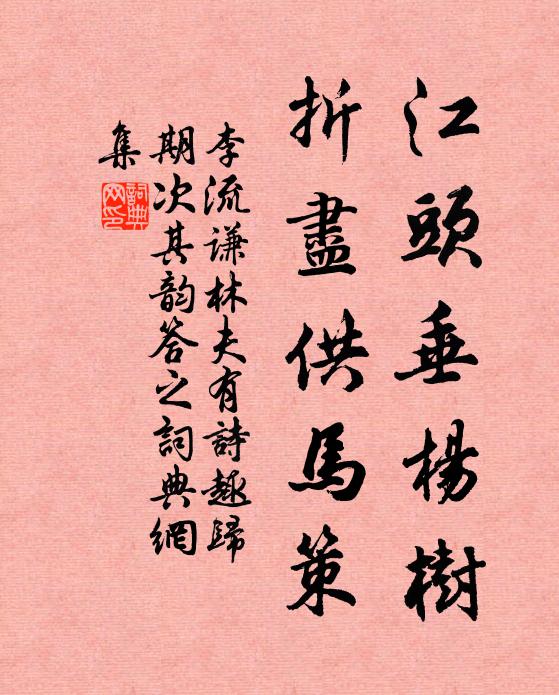 江頭垂楊樹
折盡供馬策
李流謙林夫有詩趣歸
期次其韵答之詞典網
集
詞典网印